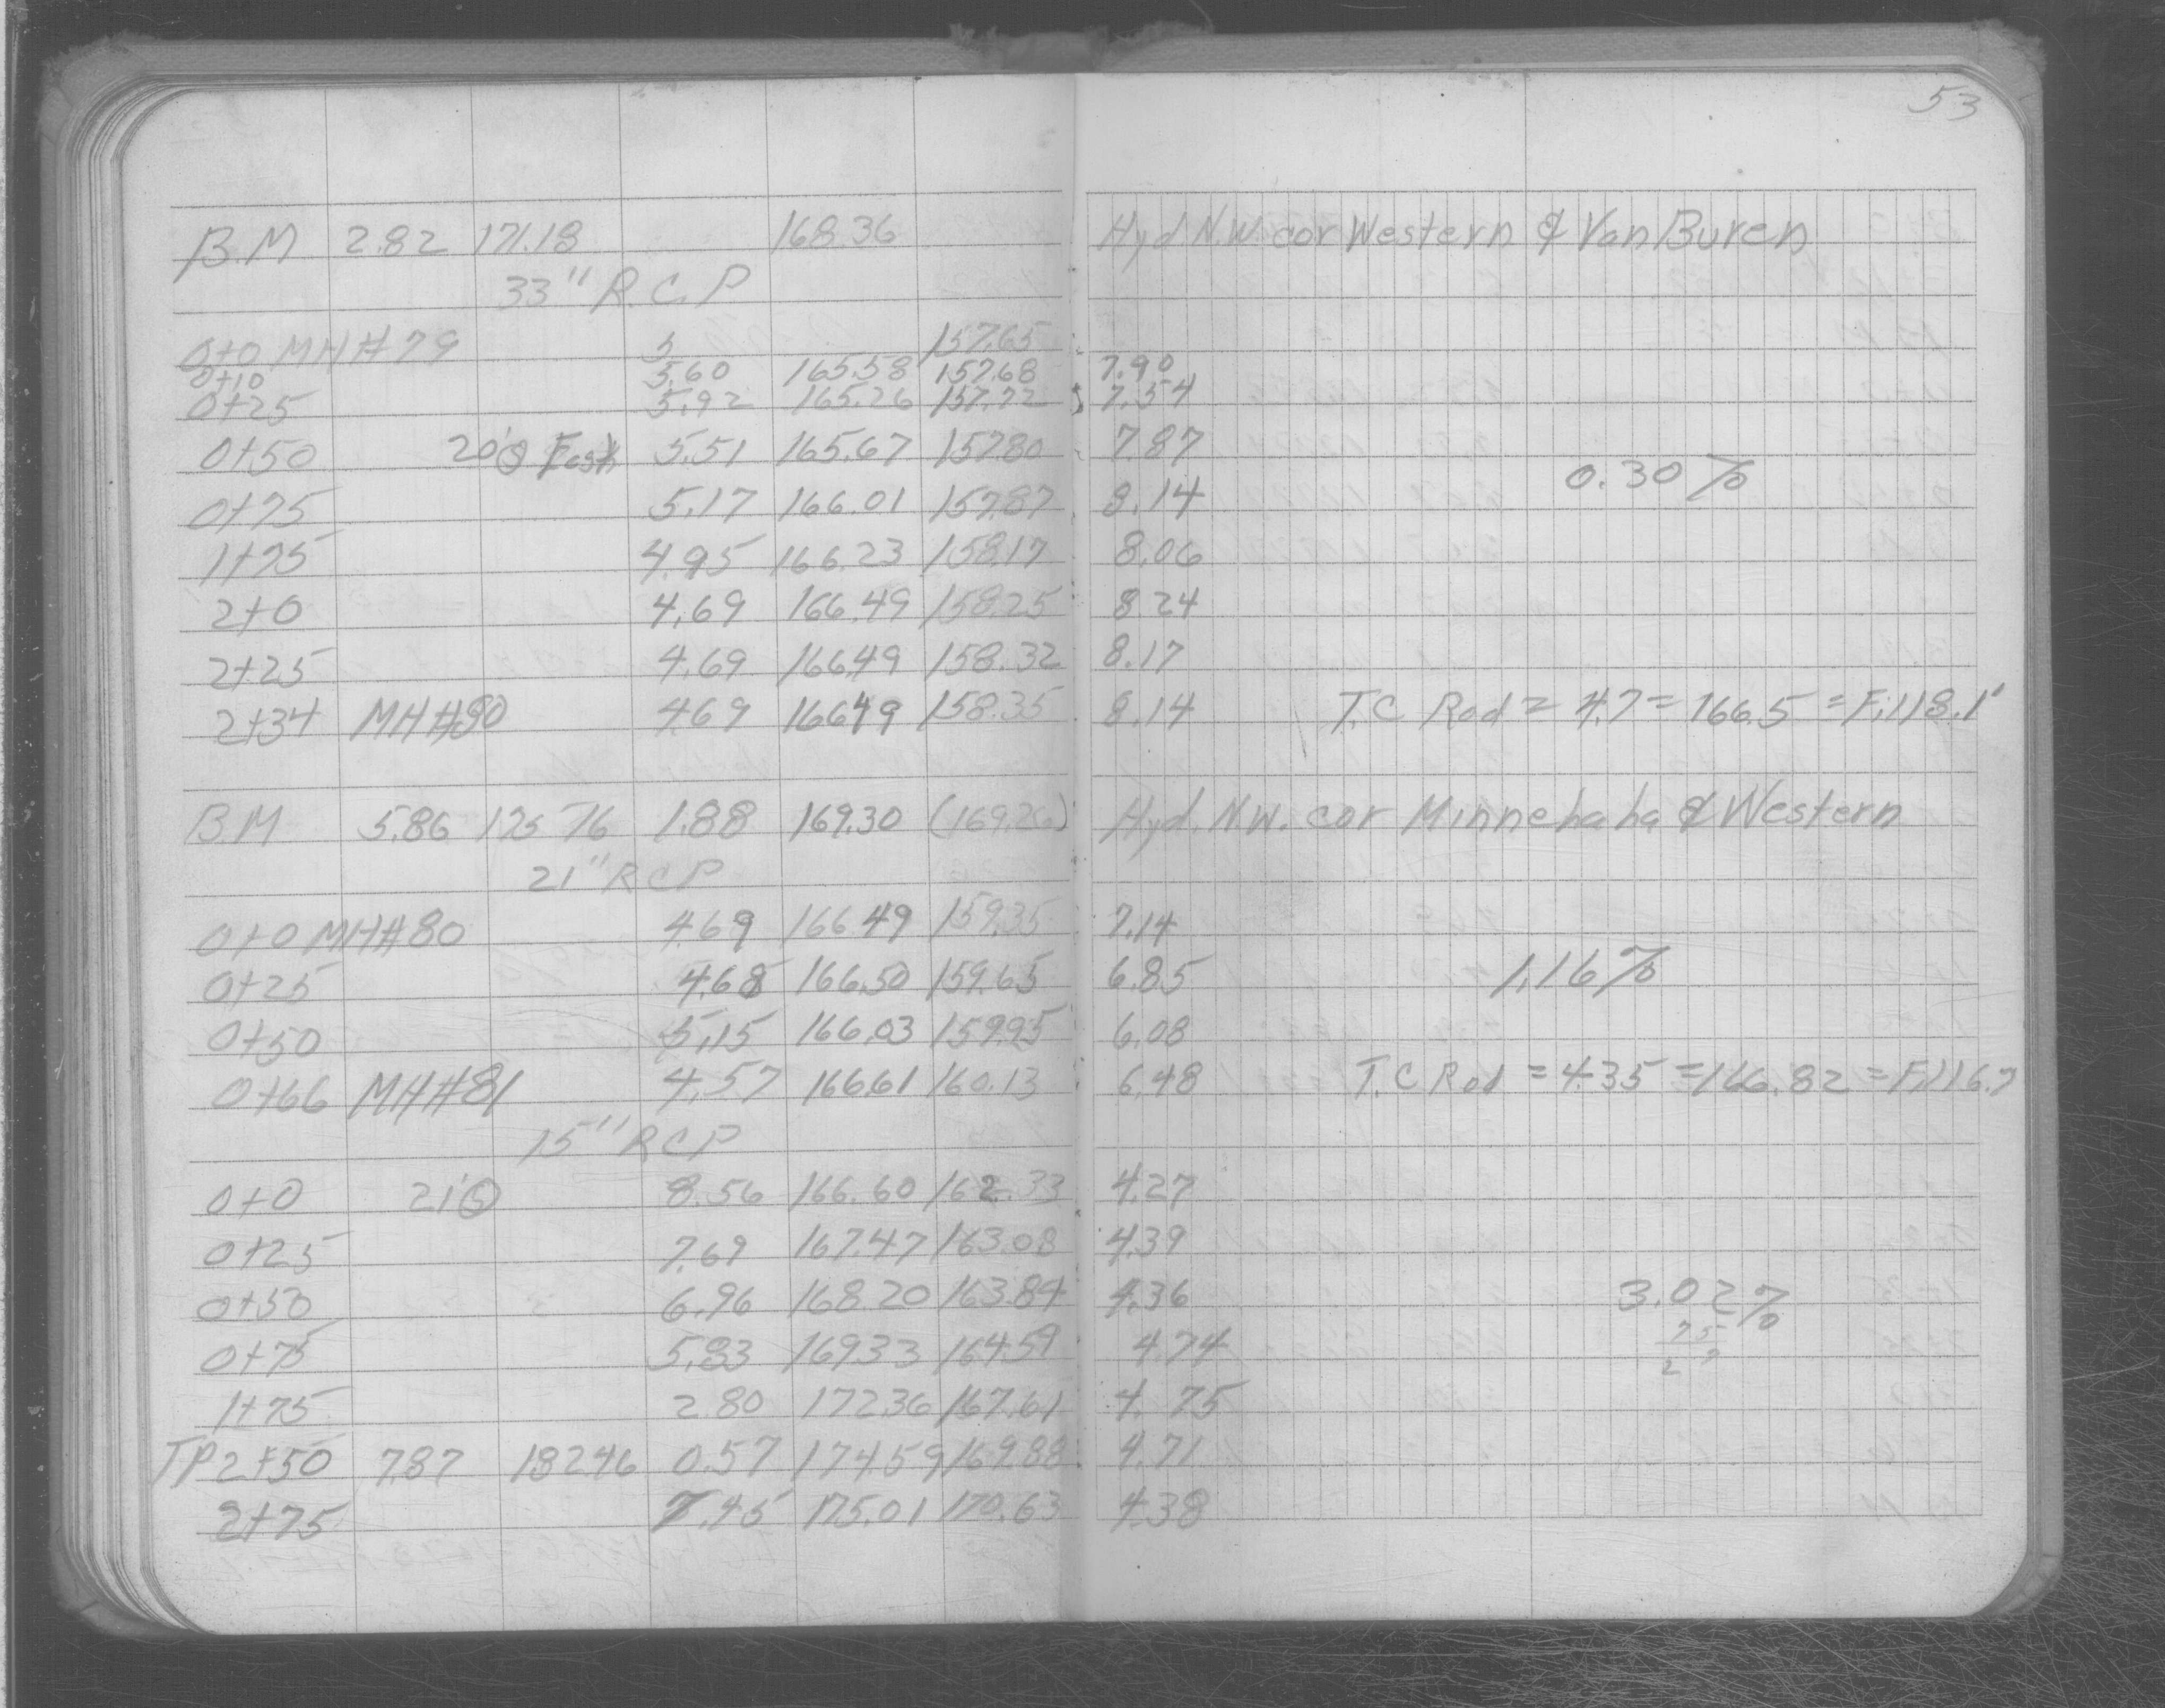 53
B.M 2.82 171.18 168.36 Hyd N.W. cor Western & Van Buren
33" R.C.P
0+0 MH#79 5 157.65
0+10 5.60 165.58 157.68 7.90
0+25 5.92 165.26 157.72 7.54
0+50 20'@ East 5.51 165.67 157.80 7.87
0.30%
0+75 5.17 166.01 157.87 8.14
1+75 4.95 166.23 158.17 8.06
2+0 4.69 166.49 158.25 8.24
2+25 4.69 166.49 158.32 8.17
2+34 MH#80 4.69 166.49 158.35 8.14 T.C Rod = 4.7 = 166.5 = Fill 8.1'
B.M 5.86 175.76 1.88 169.30 (169.26) Hyd. N.W. cor Minnehaha & Western
21" RCP
0+0 MH#80 4.69 166.49 159.35 7.14
0+25 4.68 166.50 159.65 6.85 1.16%
0+50 5.15 166.03 159.95 6.08
0+66 MH#81 4.57 166.61 160.13 6.48 T.C Rod = 4.35 = 166.82 = Fill 6.7
15" RCP
0+0 21'@ 8.56 166.60 162.33 4.27
0+25 7.69 167.47 163.08 4.39
0+50 6.96 168.20 163.84 4.36 3.02%
0+75 5.83 169.33 164.59 4.74 75
1+75 2.80 172.36 167.61 4.75
TP 2+50 7.87 182.46 0.57 174.59 169.88 4.71
2+75 7.45 175.01 170.63 4.38